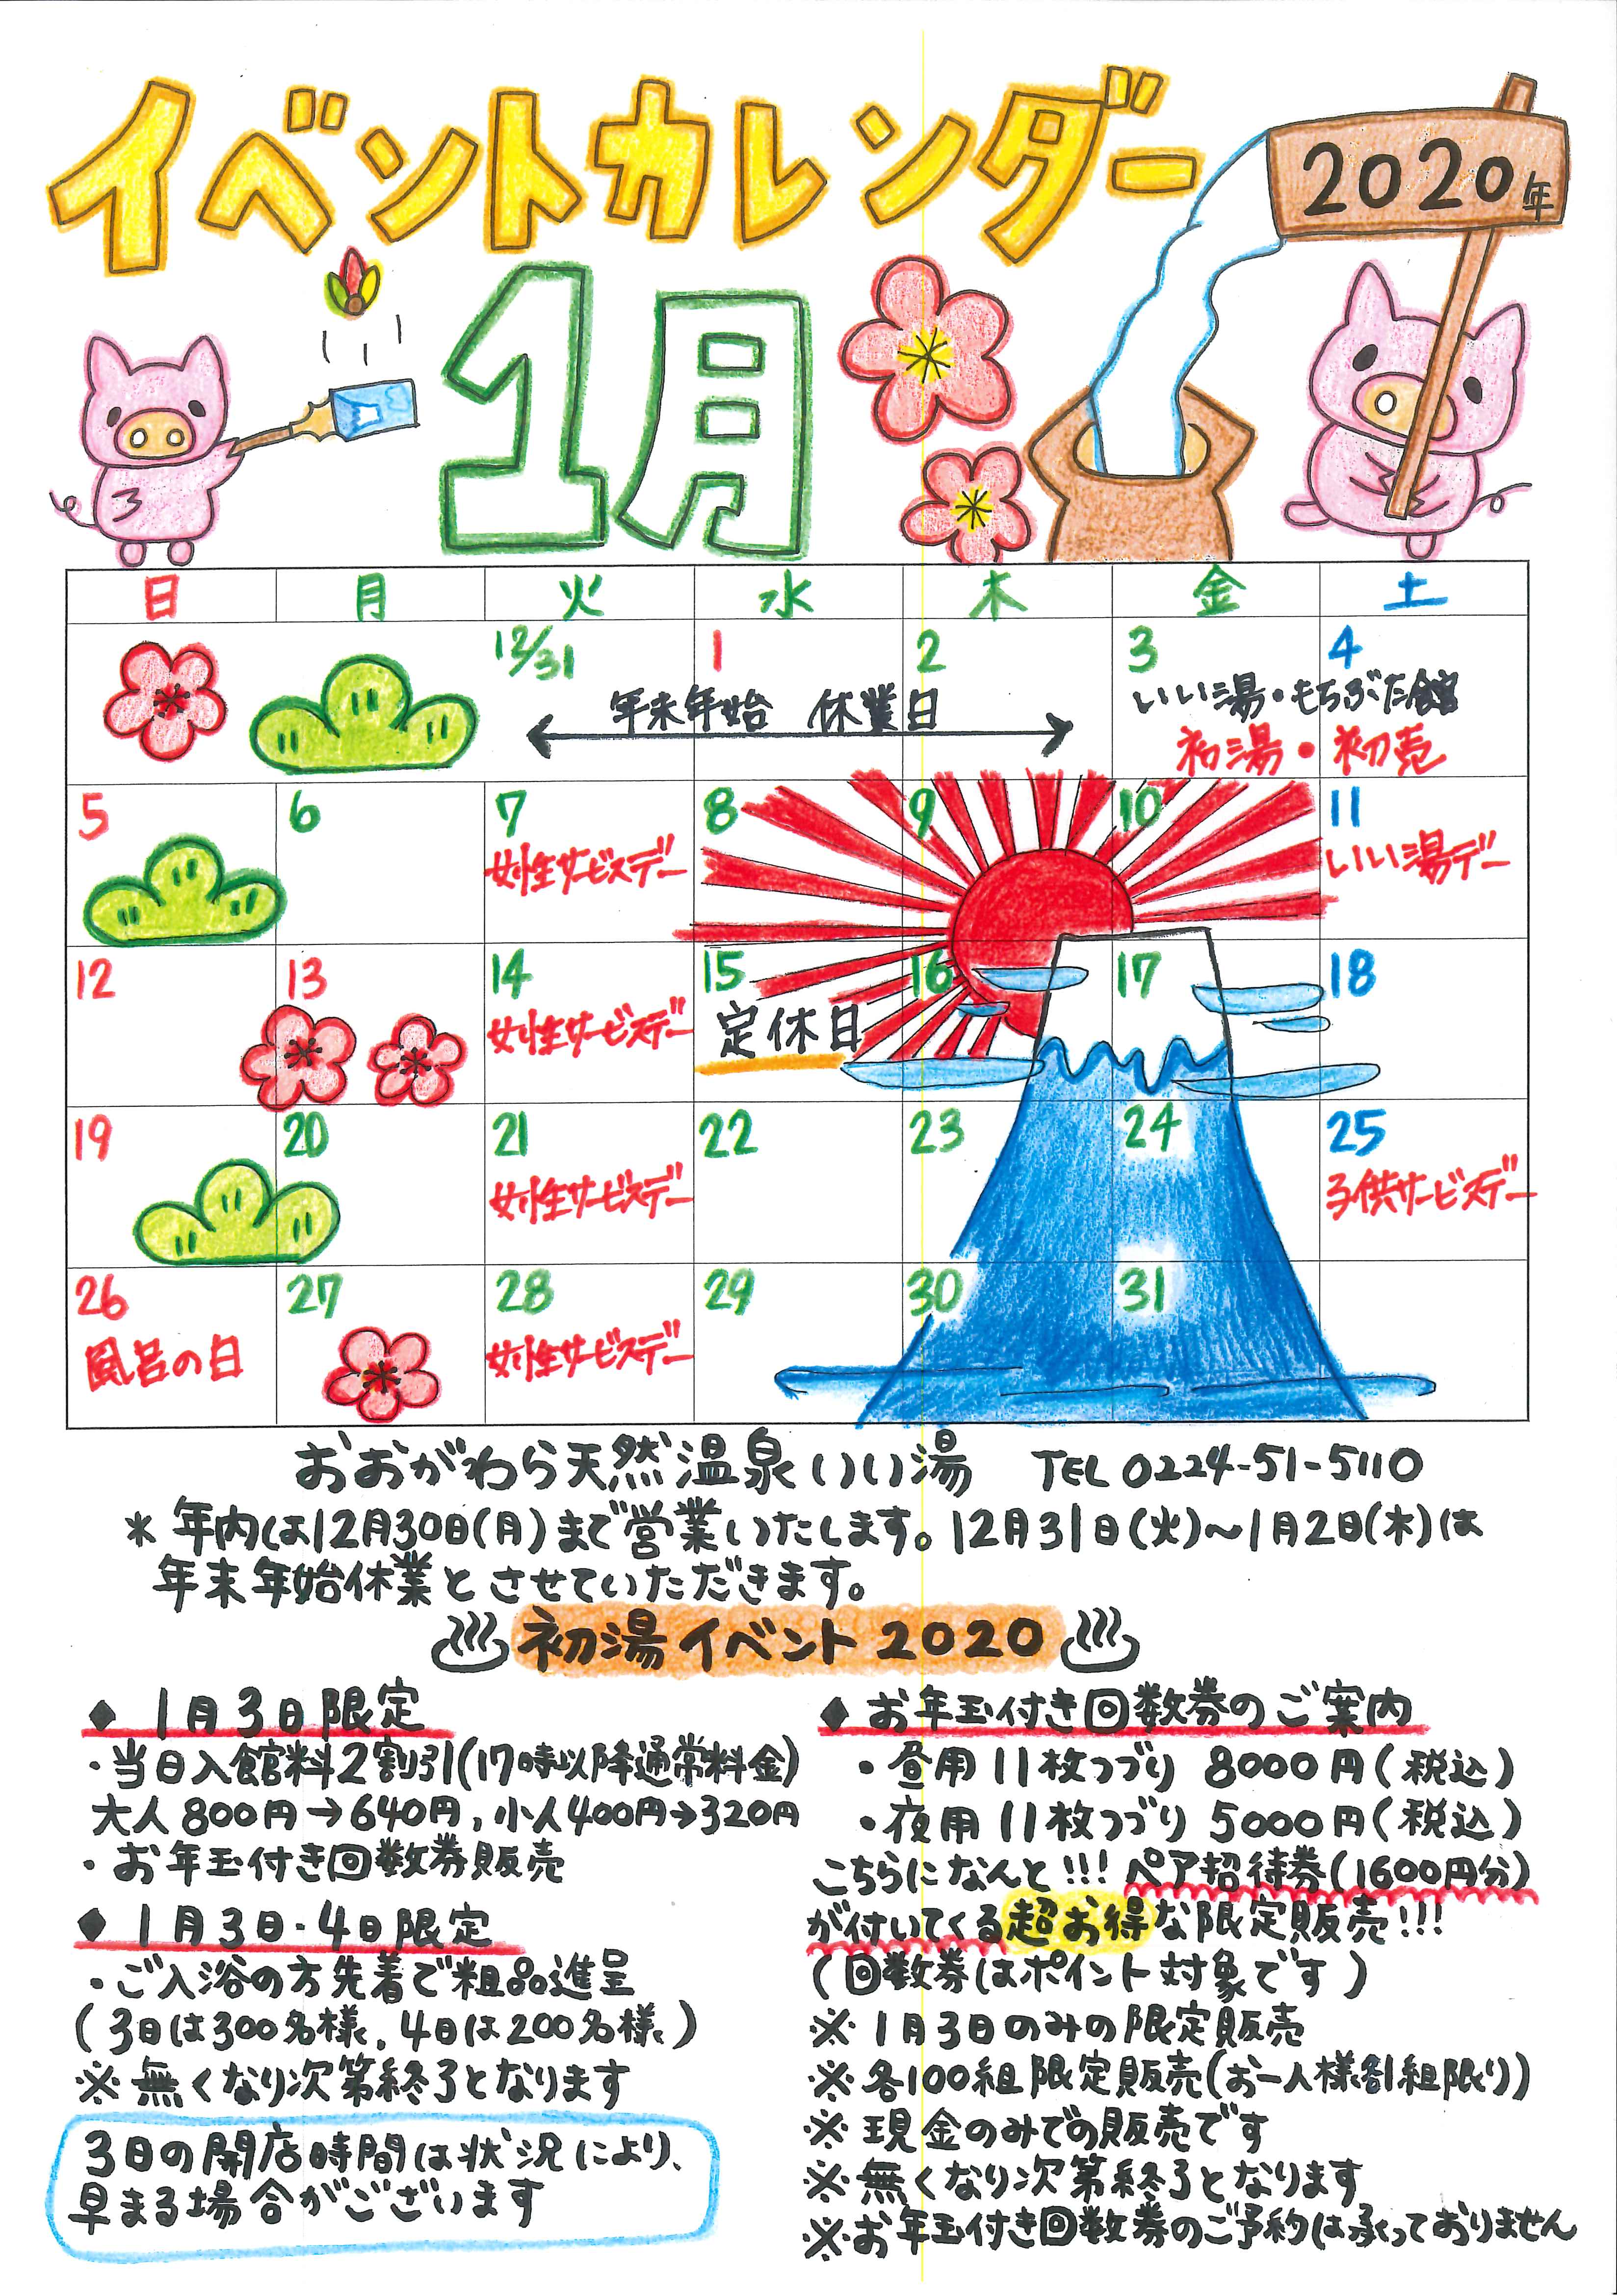 イベントカレンダー
2020年
1月
日 月 火 水 木 金 土
12/31 1 2 3 4
年末年始 休業日
いい湯・もちぶた館
初湯・初売
5 6 7 8 9 10 11
女性サービスデー
いい湯デー
12 13 14 15 16 17 18
女性サービスデー
定休日
19 20 21 22 23 24 25
女性サービスデー
子供サービスデー
26 27 28 29 30 31
風呂の日
女性サービスデー
おおがわら天然温泉いい湯 TEL 0224-51-5110
*年内は12月30日(月)まで営業いたします。12月31日(火)～1月2日(木)は
年末年始休業とさせていただきます。
♨初湯イベント2020♨
◆1月3日限定
・当日入館料2割引(17時以降通常料金)
大人800円→640円,小人400円→320円
・お年玉付き回数券販売
◆1月3日・4日限定
・ご入浴の方先着で粗品進呈
(3日は300名様,4日は200名様)
※無くなり次第終了となります
3日の開店時間は状況により、
早まる場合がございます
◆お年玉付き回数券のご案内
・昼用11枚つづり 8000円(税込)
・夜用11枚つづり 5000円(税込)
こちらになんと!!!ペア招待券(1600円分)
が付いてくる超お得な限定販売!!!
(回数券はポイント対象です)
※1月3日のみの限定販売
※各100組限定販売(お一人様割組限り)
※現金のみでの販売です
※無くなり次第終了となります
※お年玉付き回数券のご予約は承っておりません